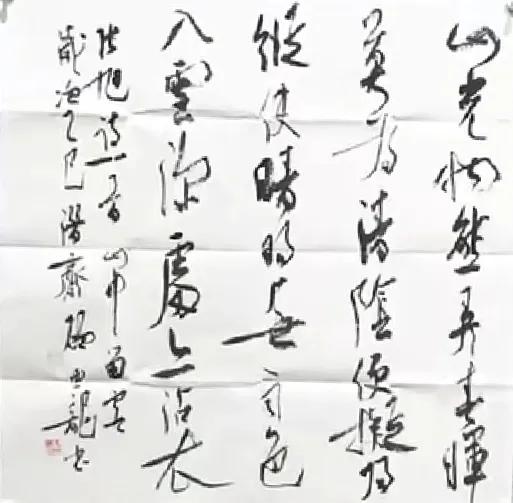 山光物態弄春暉
莫為清陰便擬歸
縱使晴明無雨色
入雲深處亦沾衣
張旭詩一首 山中留客
歲次乙巳 齋 龍書